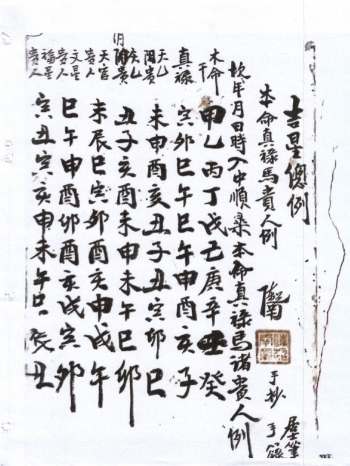 吉星總例
本命真祿馬貴人例
年月日時入中順本命真祿馬諸貴人例
本命干 甲乙丙丁戊己庚辛壬癸
真祿 寅卯巳午巳午申酉亥子
天乙陽貴 未申酉亥丑子丑寅卯巳
天乙陰貴 丑子亥酉未申未午巳卯
天官貴人 未辰巳寅卯酉亥申戌午
文星貴人 巳午申酉卯酉亥戌寅卯
福星貴人 寅丑寅亥申未午巳辰丑
手抄
墨筆
手錄